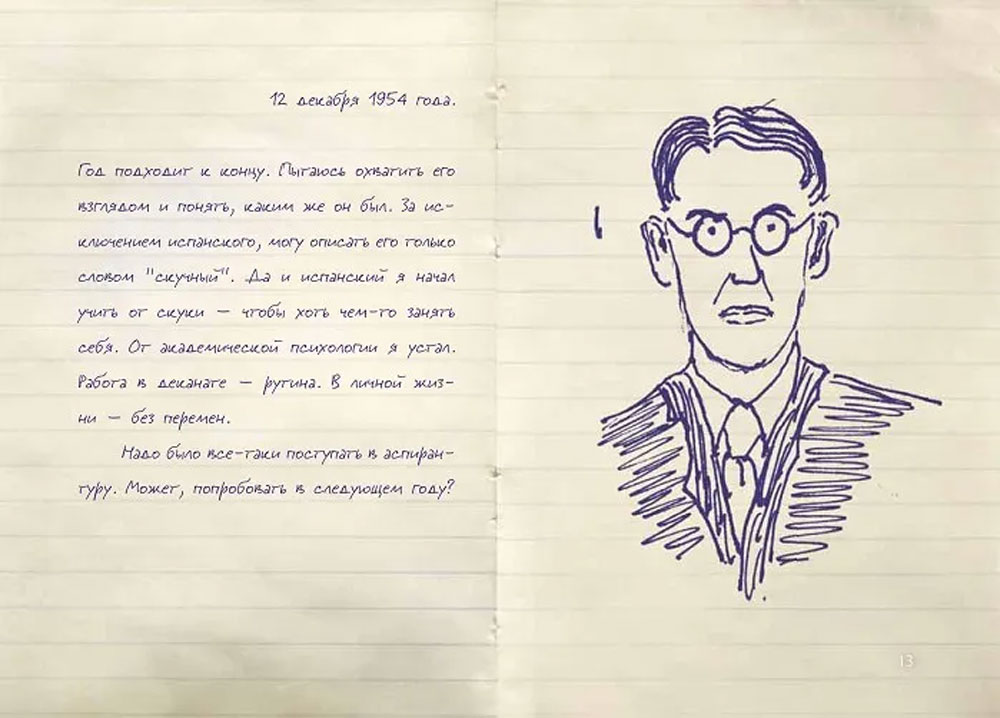 12 декабря 1954 года.
Год подходит к концу. Пытаюсь охватить его
взглядом и понять, каким же он был. За ис-
ключением испанского, могу описать его только
словом "скучный". Да и испанский я начал
учить от скуки — чтобы хоть чем-то занять
себя. От академической психологии я устал.
Работа в деканате — рутина. В личной жиз-
ни — без перемен.
Надо было все-таки поступать в аспиран-
туру. Может, попробовать в следующем году?
13